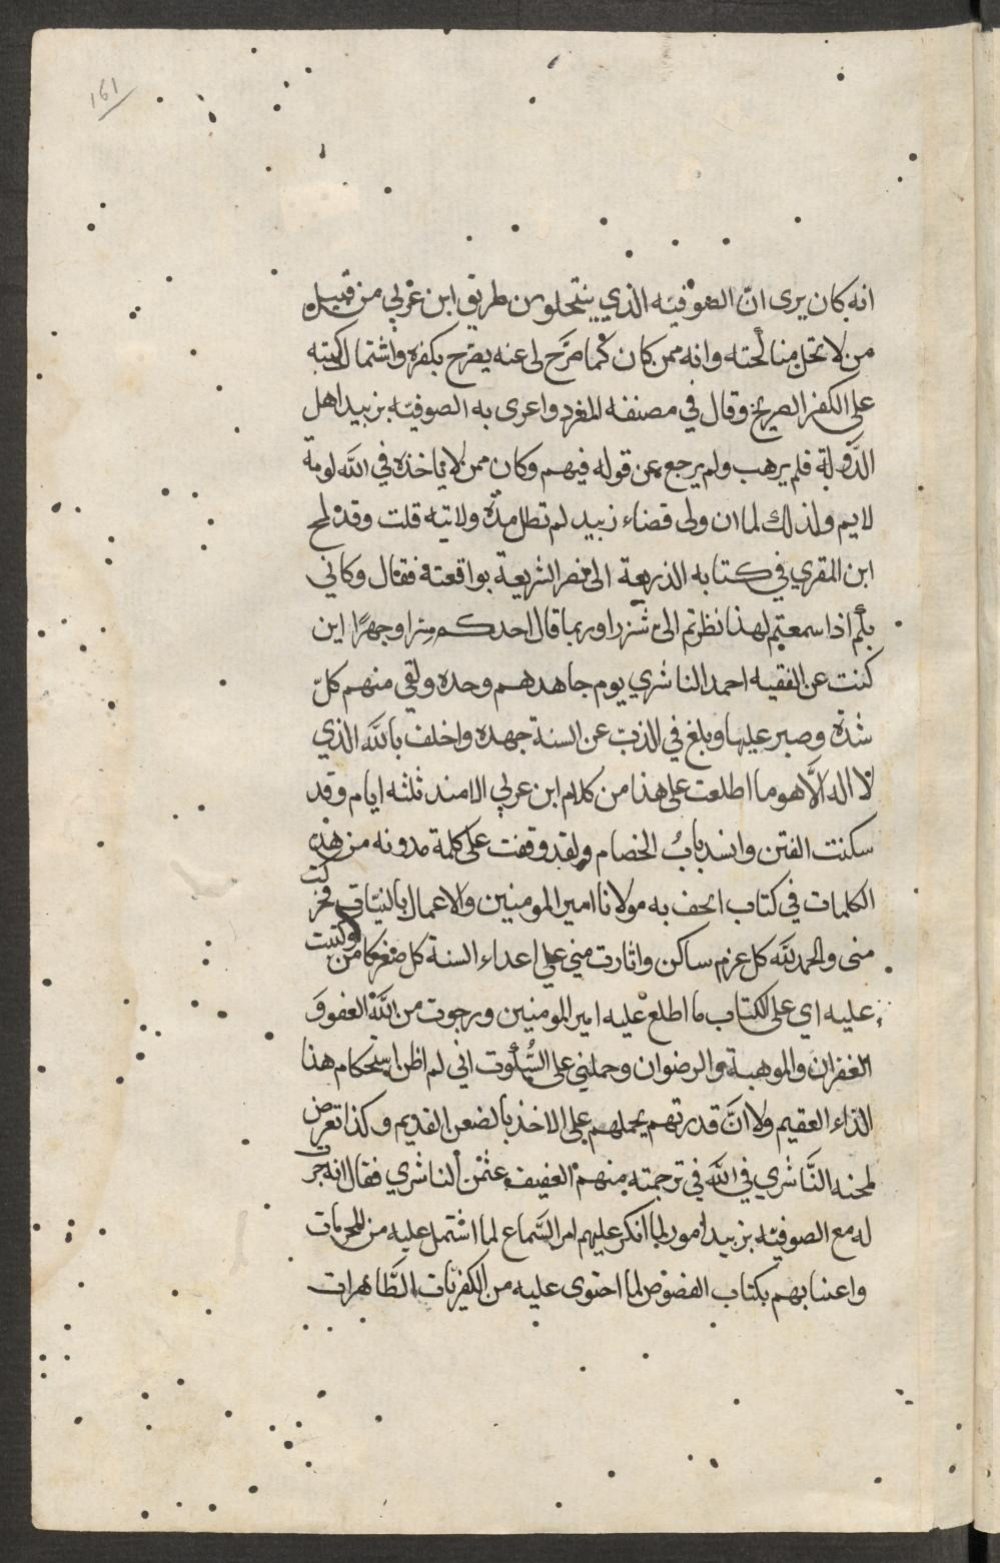 ١٦١
انه كان يرى انّ الصوفيه الذي ينتحلون طريق ابن عربي من قبيل
من لا تحل مناكحته وانه ممن كان كما صرّح لى عنه يصرح بكفره واشتمال كتبه
على الكفر الصريح وقال في مصنفه المغرد واعرى به الصوفيّه بزبيد اهل
الدّولة فلم يرهب ولم يرجع عن قوله فيهم وكان ممن لا ياخذه في الله لومة
لايم ولذلك لما ان ولى قضاء زبيد لم تطل مدّة ولايته قلت وقد لمح
ابن المقري في كتابه الذريعة الى نصر الشريعة بواقعته فقال وكاني
بكم اذا سمعتم لهذا نظرتم الىّ شزرا وربما قال احدكم سرا وجهرًا اين
كنت عن الفقيه احمد الناشري يوم جاهدهم وحده ولقى منهم كلّ
شدّة وصبر عليها وبلغ في الذبّ عن السنة جهده واحلف بالله الذي
لا اله الّا هو ما اطلعت على هذا من كلام ابن عربي الا منذ ثلثه ايام وقد
سكنت الفتن وانسد بابُ الخصام ولقد وقفت على كلمة مدونه من هذه
الكلمات في كتاب اتحف به مولانا امير المومنين والاعمال بالنيّات فحركت
منى والحمد لله كل عزم ساكن واثارت مني على اعداء السنة كل ضغن كامن وكتبت
عليه اي على الكتاب ما اطلع عليه امير المومنين ورجوت من الله العفو و
الغفران والموهبة والرضوان وحملني على السُّكوت اني لم اظن استحكام هذا
الداء العقيم ولا انّ قدرتهم يحملهم على الاخذ بالضعن القديم وكذا تعرض
لمحنه النّاشري في الله في ترجمته منهم العفيف عثمن الناشري فقال انه جرى
له مع الصوفيّه بزبيد امور لما انكر عليهم امر السّماع لما اشتمل عليه من المحرمات
واعتنا بهم بكتاب الفصوص لما احتوى عليه من الكفريّات الظّاهرات